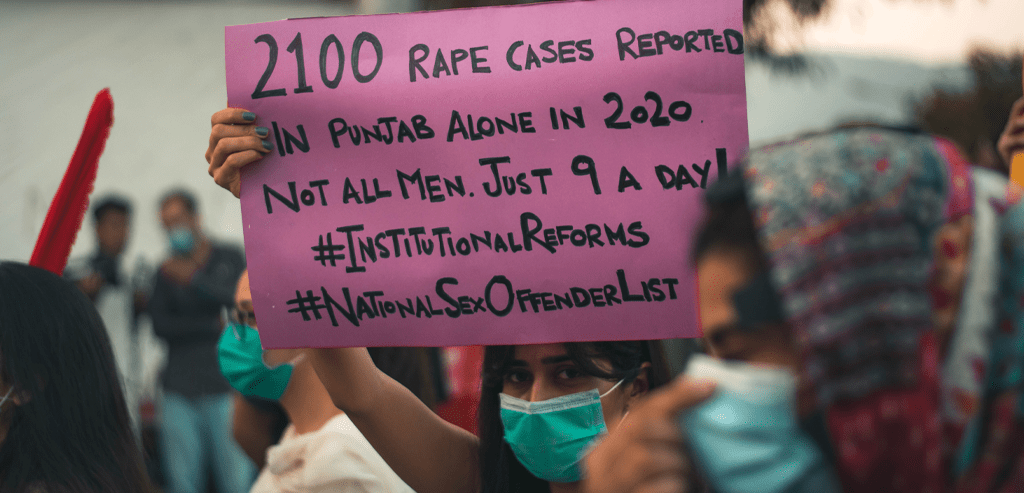 2100 RAPE CASES REPORTED
IN PUNJAB ALONE IN 2020.
NOT ALL MEN. JUST 9 A DAY!
#INSTITUTIONALREFORMS
#NATIONALSEXOFFENDERLIST